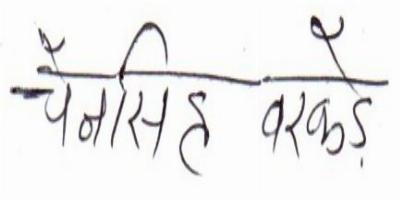 चैनसिंह वरकडे़